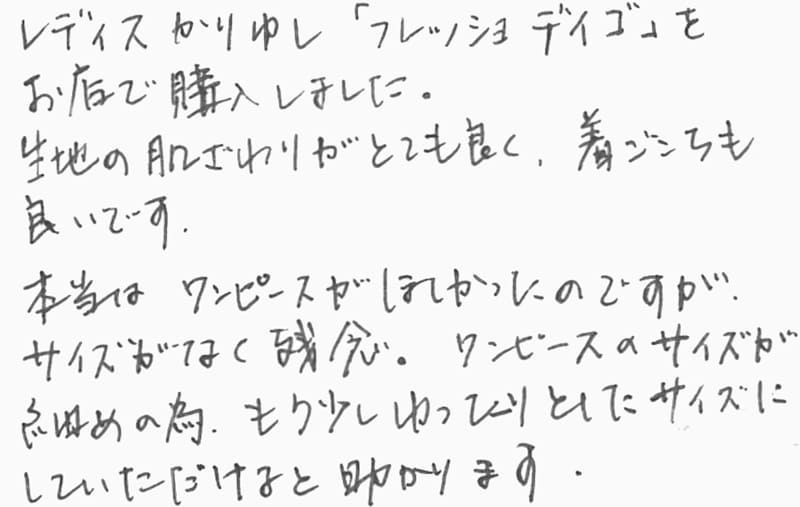 レディスかりゆし「フレッシュデイゴ」を
お店で購入しました。
生地の肌ざわりがとても良く、着ごこちも
良いです.
本当はワンピースがほしかったのですが、
サイズがなく残念。ワンピースのサイズが
細めの為、もう少しゆったりとしたサイズに
していただけると助かります.